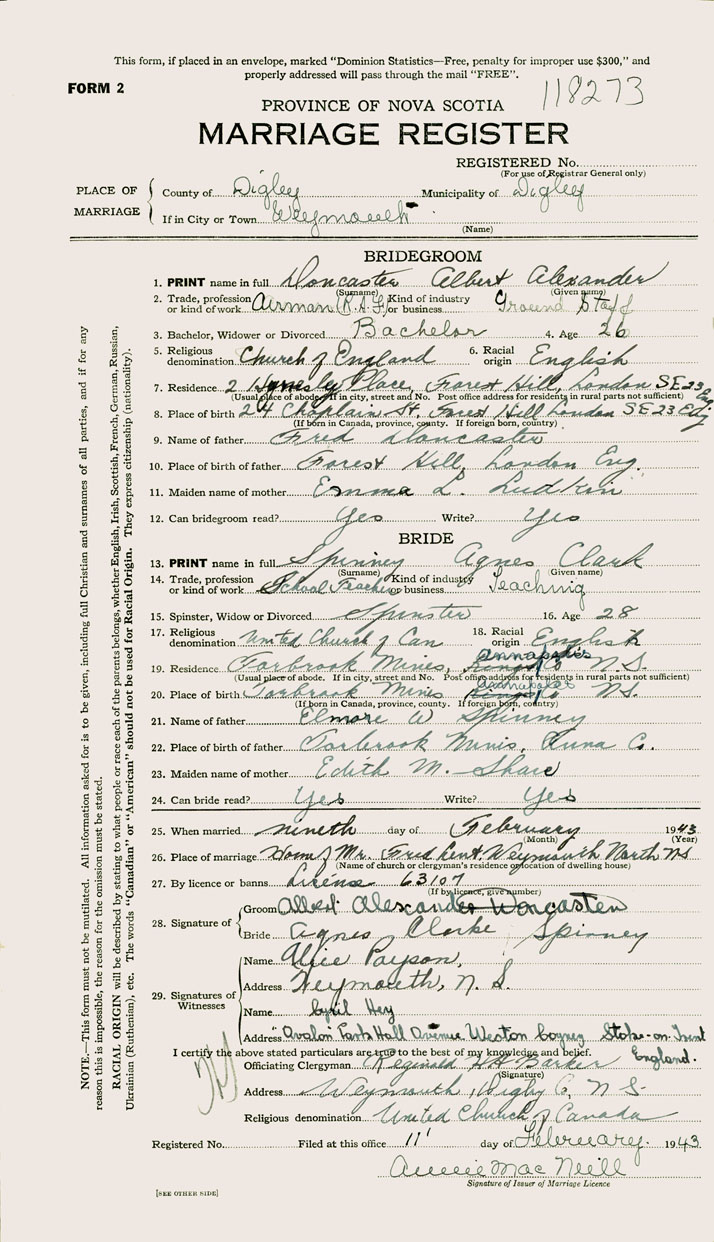 This form, if placed in an envelope, marked "Dominion Statistics—Free, penalty for improper use $300," and
properly addressed will pass through the mail "FREE".
FORM 2
118273
PROVINCE OF NOVA SCOTIA
MARRIAGE REGISTER
REGISTERED No.
(For use of Registrar General only)
PLACE OF MARRIAGE
County of Digby Municipality of Digby
If in City or Town Weymouth
(Name)
BRIDEGROOM
1. PRINT name in full Doncaster Albert Alexander
(Surname) (Given name)
2. Trade, profession or kind of work Airman (R.A.F) Kind of industry or business Ground Staff
3. Bachelor, Widower or Divorced Bachelor 4. Age 26
5. Religious denomination Church of England 6. Racial origin English
7. Residence 2 Place, Forest Hill, London SE 23 Eng
(Usual place of abode. If in city, street and No. Post office address for residents in rural parts not sufficient)
8. Place of birth 24 St. Forest Hill London SE 23 Eng
(If born in Canada, province, county. If foreign born, country)
9. Name of father Fred Doncaster
10. Place of birth of father Forest Hill, London Eng.
11. Maiden name of mother Emma L. Ludkin
12. Can bridegroom read? Yes Write? Yes
BRIDE
13. PRINT name in full Spinney Agnes Clark
(Surname) (Given name)
14. Trade, profession or kind of work School Teacher Kind of industry or business Teaching
15. Spinster, Widow or Divorced Spinster 16. Age 28
17. Religious denomination United Church of Can 18. Racial origin English
Annapolis
19. Residence Torbrook Mines, Kings Co N.S.
(Usual place of abode. If in city, street and No. Post office address for residents in rural parts not sufficient)
Annapolis
20. Place of birth Torbrook Mines Kings Co NS.
(If born in Canada, province, county. If foreign born, country)
21. Name of father Elmore W Spinney
22. Place of birth of father Torbrook Mines, Anna Co.
23. Maiden name of mother Edith M. Shaw
24. Can bride read? Yes Write? Yes
25. When married nineth day of February 1943
(Month) (Year)
26. Place of marriage Home of Mr. Fred Kent, Weymouth North NS
(Name of church or clergyman's residence or location of dwelling house)
27. By licence or banns License 63107
(If by licence, give number)
28. Signature of
Groom Albert Alexander Doncaster
Bride Agnes Clarke Spinney
29. Signatures of Witnesses
Name Alice Payson,
Address Weymouth, N. S.
Name Cyril Hey
Address "Avalon" Park Hall Avenue Weston Coyney Stoke-on-Trent
England.
I certify the above stated particulars are true to the best of my knowledge and belief.
Officiating Clergyman Reginald Barker
(Signature)
Address Weymouth, Digby Co, N S.
Religious denomination United Church of Canada
Registered No. Filed at this office 11' day of February. 1943
Annie Mac Neill
Signature of Issuer of Marriage Licence
[SEE OTHER SIDE]
NOTE.—This form must not be mutilated. All information asked for is to be given, including full Christian and surnames of all parties, and if for any
reason this is impossible, the reason for the omission must be stated.
RACIAL ORIGIN will be described by stating to what people or race each of the parents belongs, whether English, Irish, Scottish, French, German, Russian,
Ukrainian (Ruthenian), etc. The words "Canadian" or "American" should not be used for Racial Origin. They express citizenship (nationality).